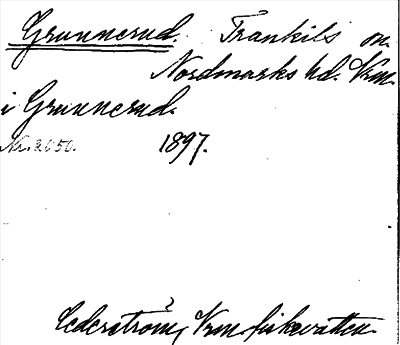 Grunnerud. Trankils sn.
Nordmarks hd. Vrm.
i Grunnerud.
Nr. 2050. 1897.
Cederström, Vrm fiskevatten.